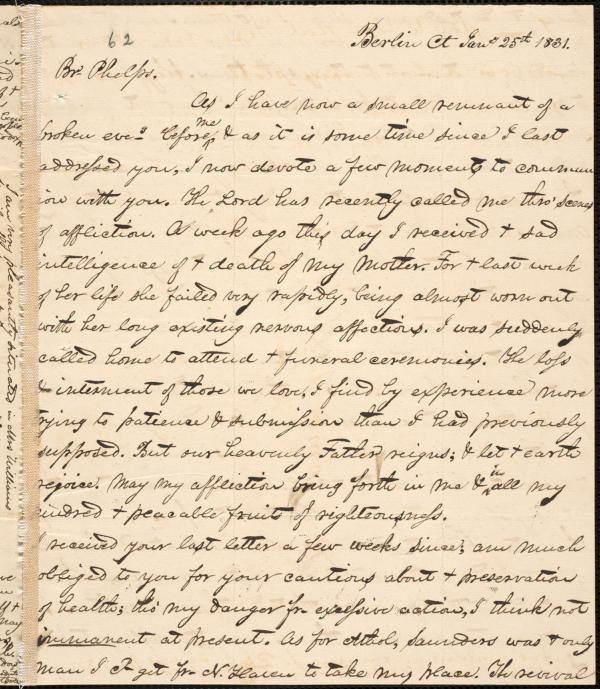 62
Berlin Ct Jany 25th 1831.
Br. Phelps.
As I have now a small remnant of a
broken eveg before me & as it is some time since I last
addressed you, I now devote a few moments to commun
ion with you. The Lord has recently called me thro' scenes
of affliction. A week ago this day I received + sad
intelligence of + death of my Mother. For + last week
of her life she failed very rapidly, being almost worn out
with her long existing nervous affections. I was suddenly
called home to attend + funeral ceremonies. The loss
& interment of those we love, I find by experience more
trying to patience & submission than I had previously
supposed. But our heavenly Father reigns; & let + earth
rejoice. May my affliction bring forth in me & in all my
kindred + peacable fruit of righteousness.
I received your last letter a few weeks since; am much
obliged to you for your cautions about + preservation
of health; tho' my danger fr. excessive action, I think not
immanent at present. As for Athol, Saunders was + only
man I cd get fr. N. Haven to take my place. The revival
I am very pleasantly situated in Mrs Williams